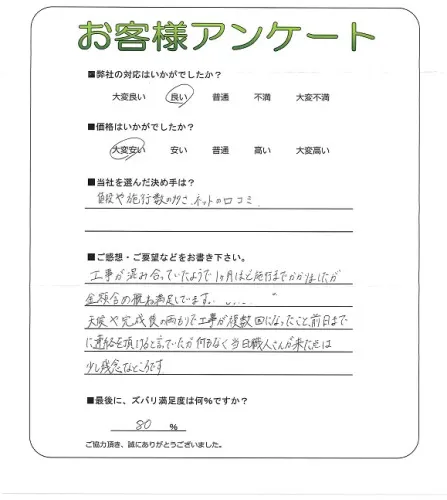 お客様アンケート
■弊社の対応はいかがでしたか？
大変良い 良い 普通 不満 大変不満
■価格はいかがでしたか？
大変安い 安い 普通 高い 大変高い
■当社を選んだ決め手は？
値段や施行数の多さ、ネットの口コミ
■ご感想・ご要望などをお書き下さい。
工事が混み合っていたようで1ヶ月ほど施行までかかりましたが
金額含め概ね満足しています。
天候や完成
の両わりで工事が複数回になったこと、前日まで
に連絡を頂けると言っていたが何もなく当日職人さんが来た
は
少し残念なところです
■最後に、ズバリ満足度は何％ですか？
80 ％
ご協力頂き、誠にありがとうございました。